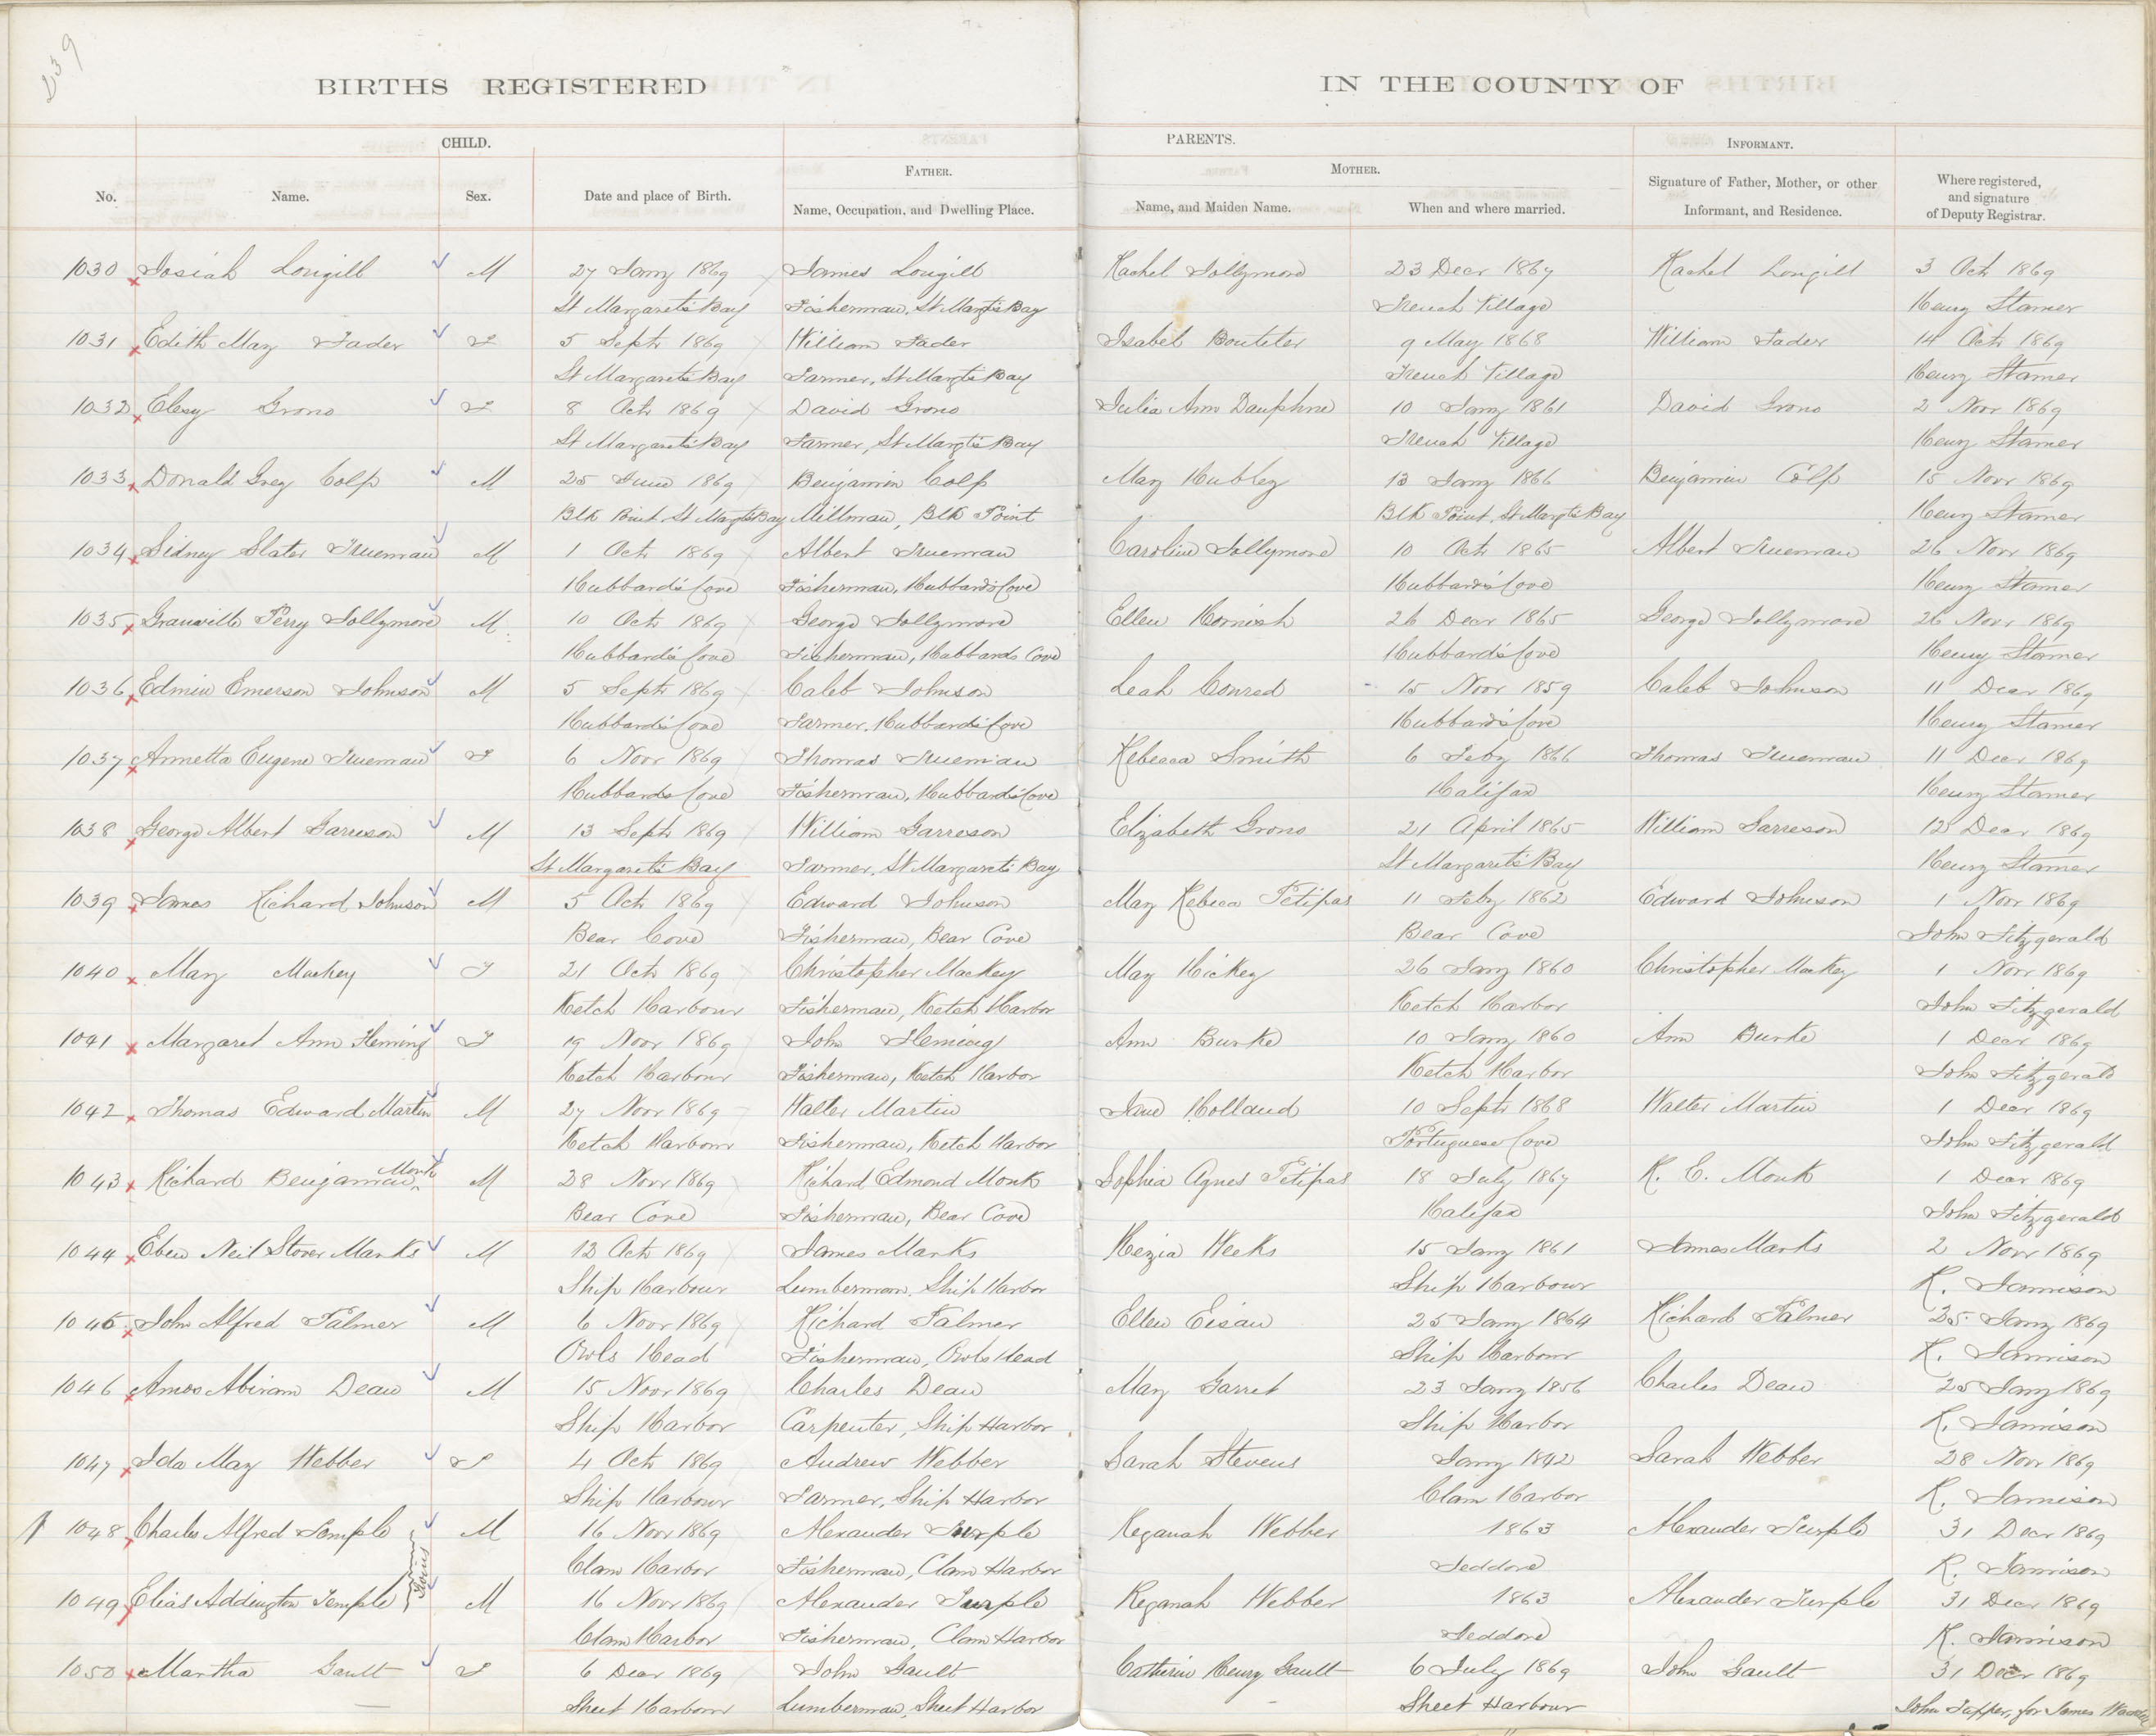 239
BIRTHS REGISTERED IN THE COUNTY OF
CHILD. PARENTS. INFORMANT.
FATHER. MOTHER.
No. Name. Sex. Date and place of Birth. Name, Occupation, and Dwelling Place. Name, and Maiden Name. When and where married. Signature of Father, Mother, or other Informant, and Residence. Where registered, and signature of Deputy Registrar.
1030 Josiah Longill M 27 Jany 1869 James Longill Rachel Jollymore 23 Decr 1867 Rachel Longill 3 Octr 1869
St Margaret's Bay Fisherman, St Margts Bay French Village Henry Stamer
1031 Edith May Fader F 5 Septr 1869 William Fader Isabel Bouteler 9 May 1868 William Fader 14 Octr 1869
St Margaret's Bay Farmer, St Margts Bay French Village Henry Stamer
1032 Elexy Grono F 8 Octr 1869 David Grono Julia Ann Dauphne 10 Jany 1861 David Grono 2 Novr 1869
St Margaret's Bay Farmer, St Margts Bay French Village Henry Stamer
1033 Donald Grey Colp M 25 June 1869 Benjamin Colp Mary Hubley 13 Jany 1866 Benjamin Colp 15 Novr 1869
Blk Point, St Margts Bay Millman, Blk Point Blk Point, St Margts Bay Henry Stamer
1034 Sidney Slater Trueman M 1 Octr 1869 Albert Trueman Caroline Jollymore 10 Octr 1865 Albert Trueman 26 Novr 1869
Hubbard's Cove Fisherman, Hubbard's Cove Hubbard's Cove Henry Stamer
1035 Granville Perry Jollymore M 10 Octr 1869 George Jollymore Ellen Hornish 26 Decr 1865 George Jollymore 26 Novr 1869
Hubbard's Cove Fisherman, Hubbards Cove Hubbard's Cove Henry Stamer
1036 Edmin Emerson Johnson M 5 Septr 1869 Caleb Johnson Leah Conred 15 Novr 1859 Caleb Johnson 11 Decr 1869
Hubbard's Cove Farmer, Hubbard's Cove Hubbard's Cove Henry Stamer
1037 Annetta Eugene Trueman F 6 Novr 1869 Thomas Trueman Rebecca Smith 6 Feby 1866 Thomas Trueman 11 Decr 1869
Hubbards Cove Fisherman, Hubbard's Cove Halifax Henry Stamer
1038 George Albert Garreson M 13 Septr 1869 William Garreson Elizabeth Grono 21 April 1865 William Garreson 12 Decr 1869
St Margaret's Bay Farmer, St Margaret's Bay St Margaret's Bay Henry Stamer
1039 James Richard Johnson M 5 Octr 1869 Edward Johnson Mary Rebeca Petipas 11 Feby 1862 Edward Johnson 1 Novr 1869
Bear Cove Fisherman, Bear Cove Bear Cove John Fitzgerald
1040 Mary Mackey F 21 Octr 1869 Christopher Mackey Mary Hickey 26 Jany 1860 Christopher Mackey 1 Novr 1869
Ketch Harbour Fisherman, Ketch Harbor Ketch Harbor John Fitzgerald
1041 Margaret Ann Fleming F 19 Novr 1869 John Fleming Ann Burke 10 Jany 1860 Ann Burke 1 Decr 1869
Ketch Harbour Fisherman, Ketch Harbor Ketch Harbor John Fitzgerald
1042 Thomas Edward Martin M 27 Novr 1869 Walter Martin Jane Holland 10 Septr 1868 Walter Martin 1 Decr 1869
Ketch Harbour Fisherman, Ketch Harbor Portuguese Cove John Fitzgerald
1043 Richard Benjamin Monk M 28 Novr 1869 Richard Edmond Monk Sophia Agnes Petipas 18 July 1867 R. E. Monk 1 Decr 1869
Bear Cove Fisherman, Bear Cove Halifax John Fitzgerald
1044 Eben Neil Stover Marks M 12 Octr 1869 James Marks Kezia Weeks 15 Jany 1861 James Marks 2 Novr 1869
Ship Harbour Lumberman, Ship Harbor Ship Harbour R. Jamison
1045 John Alfred Palmer M 6 Novr 1869 Richard Palmer Ellen Eisan 25 Jany 1864 Richard Palmer 25 Jany 1869
Owls Head Fisherman, Owls Head Ship Harbour R. Jamison
1046 Amos Abiram Dean M 15 Novr 1869 Charles Dean Mary Garret 23 Jany 1856 Charles Dean 25 Jany 1869
Ship Harbor Carpenter, Ship Harbor Ship Harbor R. Jamison
1047 Ida May Webber F 4 Octr 1869 Andrew Webber Sarah Stevens Jany 1842 Sarah Webber 28 Novr 1869
Ship Harbour Farmer, Ship Harbor Clam Harbor R. Jamison
1048 Charles Alfred Temple Twins M 16 Novr 1869 Alexander Turple Reganah Webber 1863 Alexander Turple 31 Decr 1869
Clam Harbor Fisherman, Clam Harbor Jeddore R. Jamison
1049 Elias Addington Temple M 16 Novr 1869 Alexander Turple Reganah Webber 1863 Alexander Turple 31 Decr 1869
Clam Harbor Fisherman, Clam Harbor Jeddore R. Jamison
1050 Martha Gault F 6 Decr 1869 John Gault Catherine Henry Gault 6 July 1869 John Gault 31 Decr 1869
Sheet Harbour Lumberman, Sheet Harbor Sheet Harbour John Tupper, for James